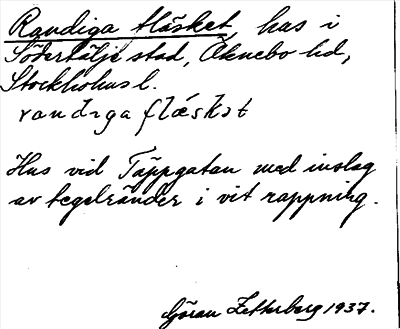 Randiga fläsket, hus i
Södertälje stad, Öknebo hd,
Stockholms l.
randiga fläskət
Hus vid Täppgatan med inslag
av tegelränder i vit rappning.
Göran Zetterberg 1937.